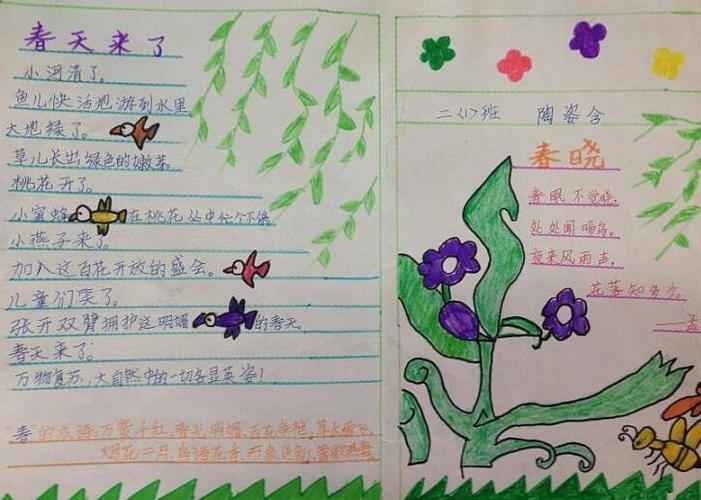 春天来了
小河清了。
鱼儿快活地游到水里。
大地绿了。
草儿长出绿色的嫩芽。
桃花开了。
小蜜蜂在桃花处中忙个不停
小燕子来了。
加入这百花开放的盛会。
儿童们笑了。
张开双臂拥护这明媚的春天。
春天来了。
万物复苏，大自然中的一切各显英姿！
春的成语:万紫千红、春光明媚、百花争艳、
烟花三月、鸟语花香、
二(1)班 陶姿含
春晓
春眠不觉晓，
处处闻啼鸟。
夜来风雨声，
花落知多少。
——孟